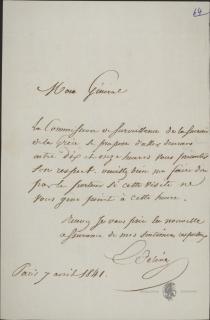 64
Mon Général
La Commission de surveillance de la
de la se propose d'aller demain
entre dix et onze heures vous présenter
son respect. veuillez bien me faire dire
par le porteur si cette visite ne
vous gêne point à cette heure.
Recevez je vous prie la nouvelle
assurance de mes sentimens respectueux
Paris 7 avril 1841.